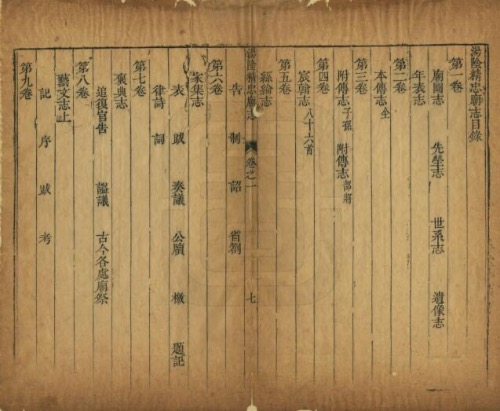 湯陰精忠廟志目錄
第一卷
廟圖志 先塋志 世系志 遺像志
年表志
第二卷
本傳志全
第三卷
附傳志子孫 附傳志部將
第四卷
宸翰志八十六首
第五卷
絲綸志
湯陰精忠廟志 卷之一 七
告 制 詔 省劄
第六卷
家集志
表 跋 奏議 公牘 檄 題記
律詩 詞
第七卷
褒典志
追復官告 諡議 古今各處廟祭
第八卷
藝文志上
記 序 跋 考
第九卷